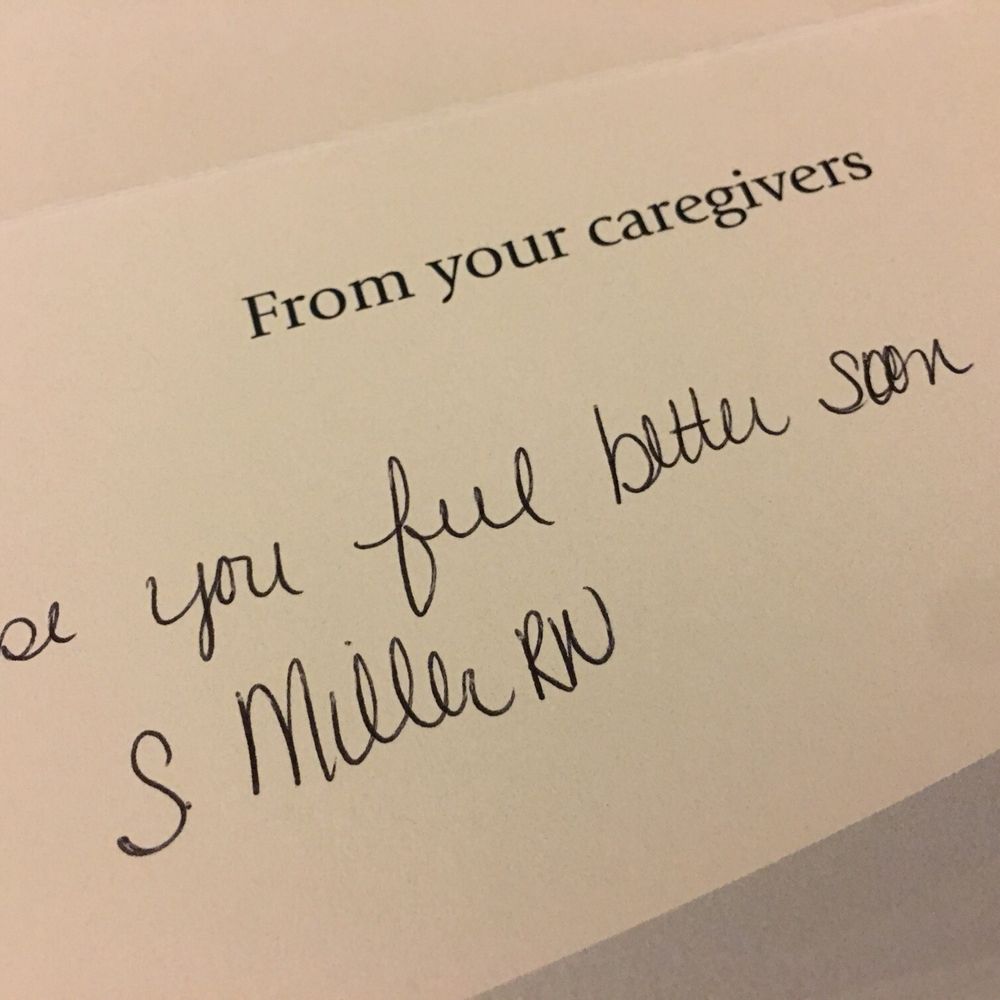 From your caregivers
pe you feel better soon
S. Miller RN